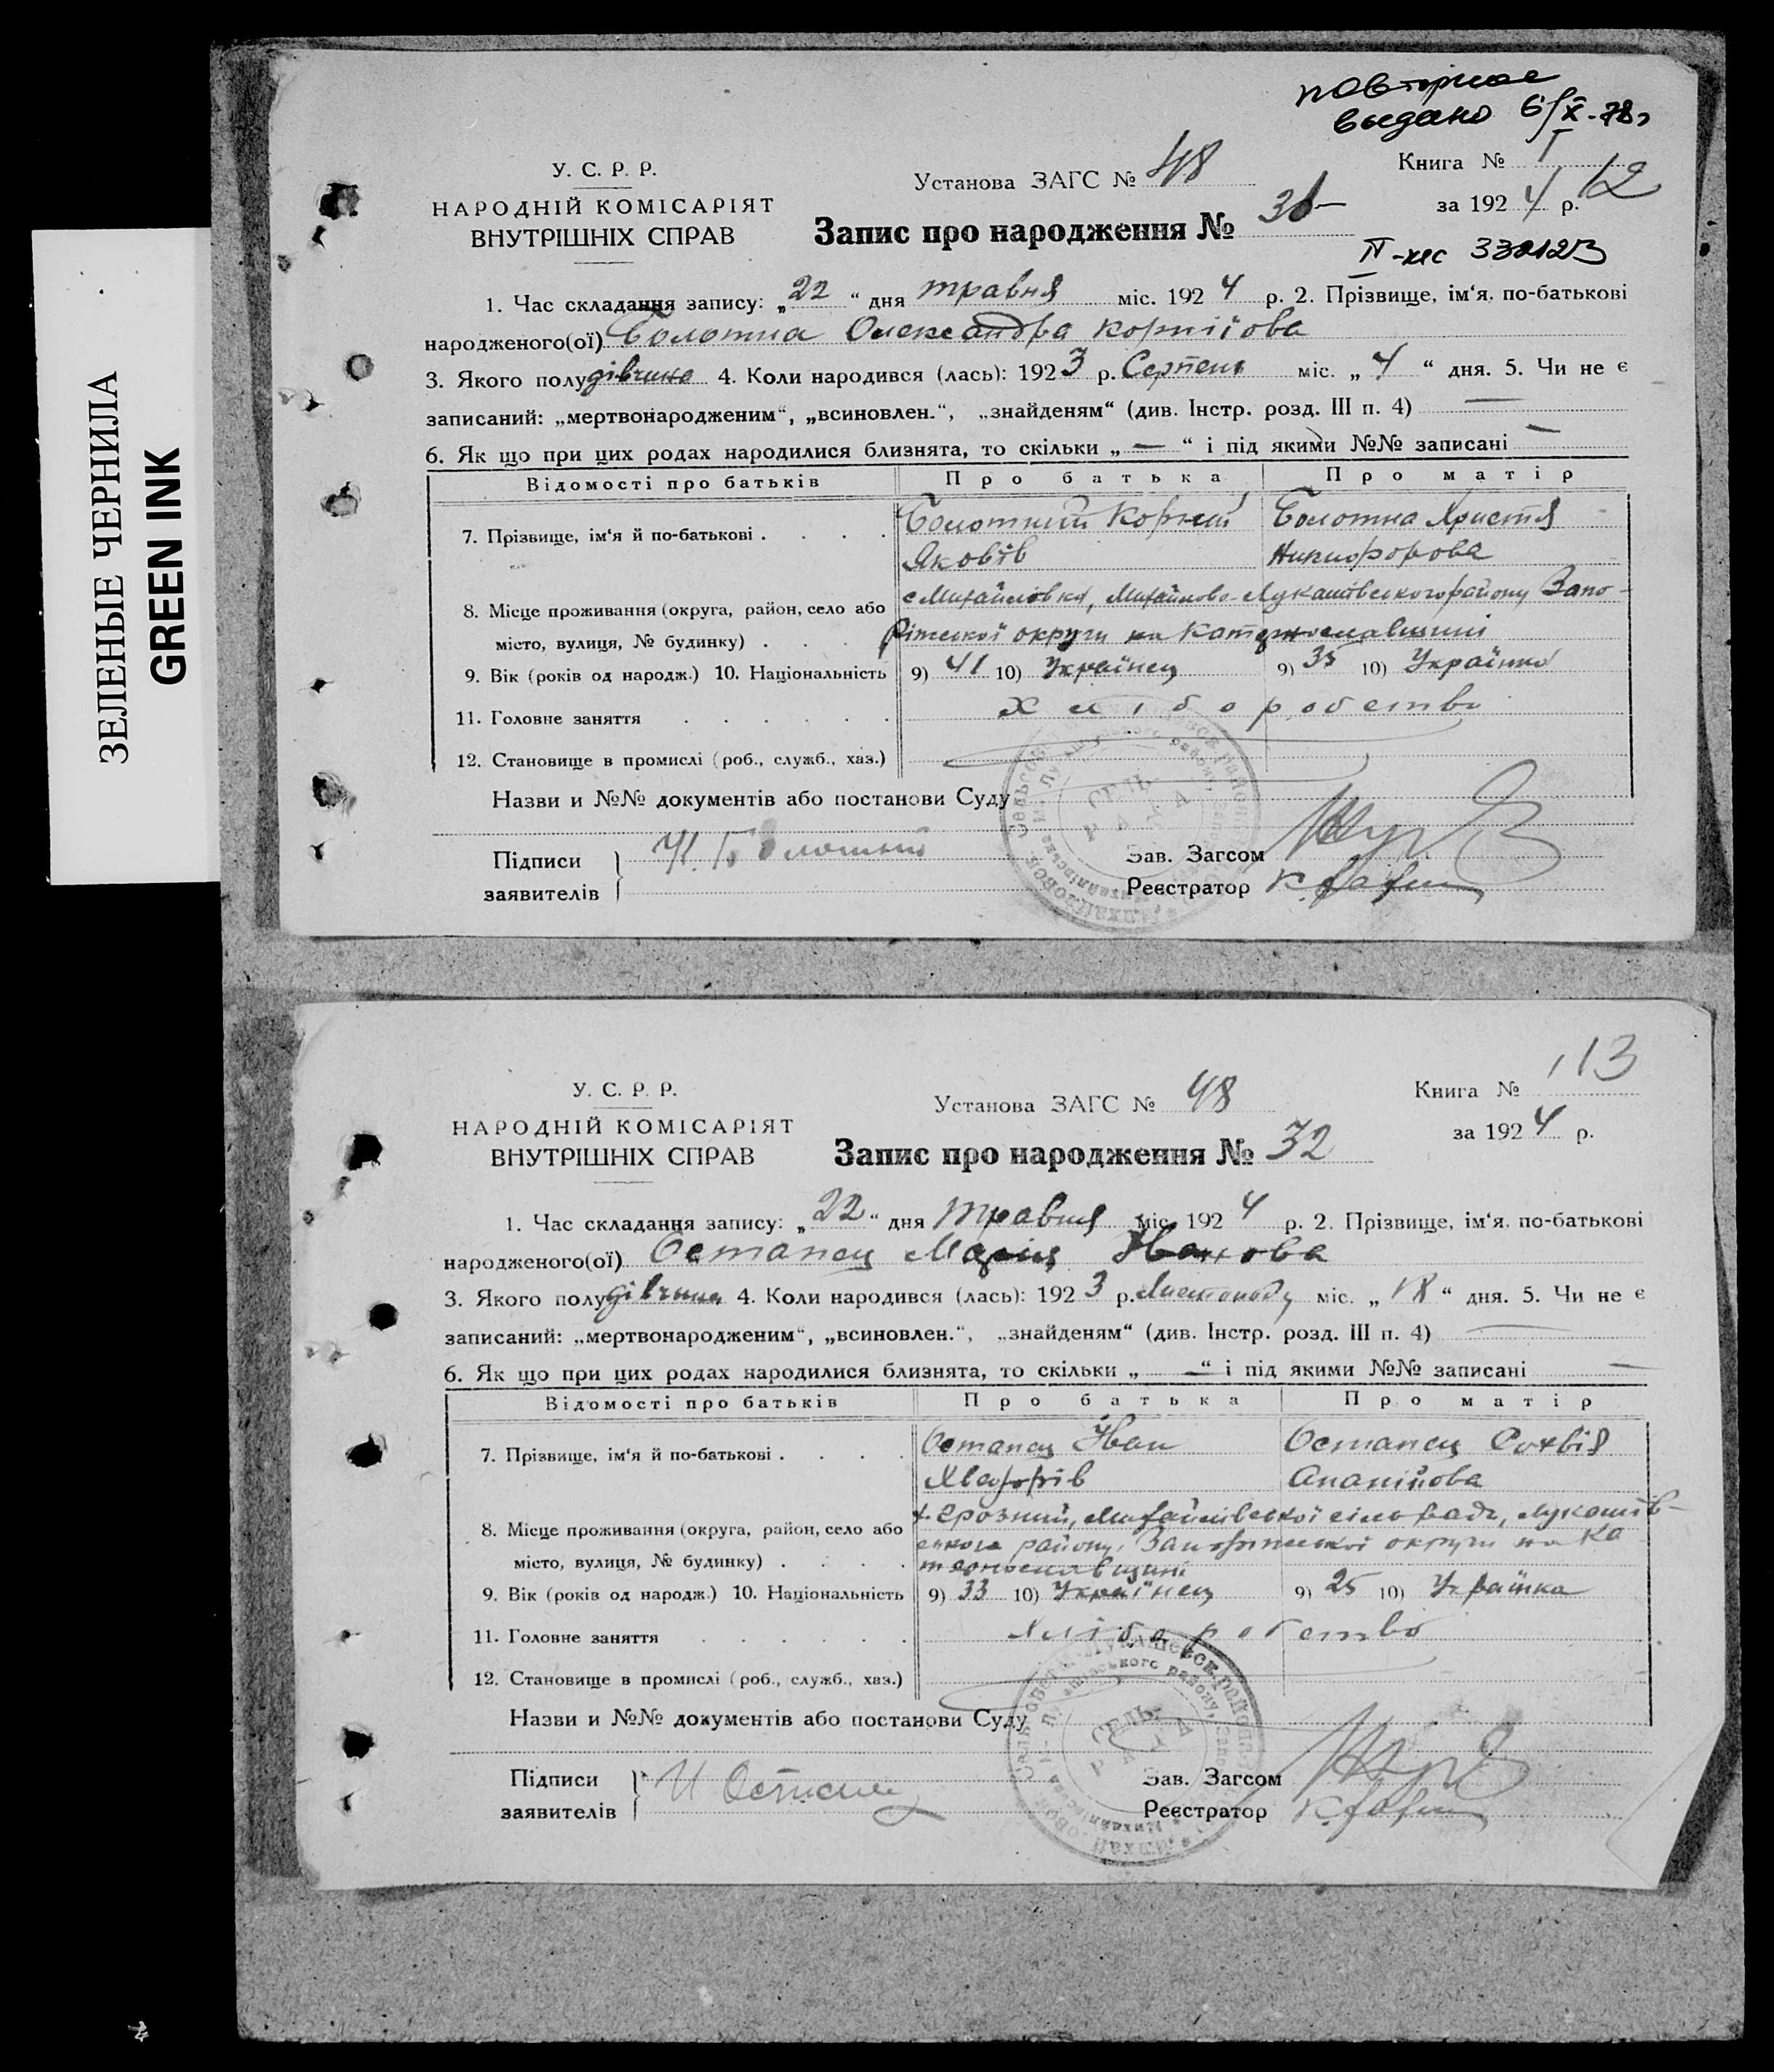 ЗЕЛЕНЫЕ ЧЕРНИЛА
GREEN INK
повторное
выдано 6/X-78г
У. С. Р. Р.
НАРОДНІЙ КОМІСАРІЯТ
ВНУТРІШНІХ СПРАВ
Установа ЗАГС № 48
Запис про народження № 31
Книга № I
12
за 1924 р.
1. Час складання запису: „22“ дня травня міс. 1924 р. 2. Прізвище, ім‘я, по-батькові
народженого(ої) Болотна Олександра Корніїова
3. Якого полу дівчина 4. Коли народився (лась): 1923 р. Серпень міс. „4“ дня. 5. Чи не є
записаний: „мертвонародженим“, „всиновлен.“, „знайденям“ (див. Інстр. розд. III п. 4) —
6. Як що при цих родах народилися близнята, то скільки „—“ і під якими №№ записані —
Відомості про батьків Про батька Про матір
7. Прізвище, ім‘я й по-батькові . . . . Болотний Корній Болотна Христя
Яковів Никифорова
8. Місце проживання (округа, район, село або с Михайлівка, Михайлово-Лукашівського району Запо-
місто, вулиця, № будинку) . . . ріжської округи на Катернославщині
9. Вік (років од народж.) 10. Національність 9) 41 10) Українец 9) 35 10) Українка
11. Головне заняття . . . . . . Хліборобство
12. Становище в промислі (роб., служб., хаз.)
Назви и №№ документів або постанови Суду
Підписи
заявителів
Зав. Загсом
Реєстратор
У. С. Р. Р.
НАРОДНІЙ КОМІСАРІЯТ
ВНУТРІШНІХ СПРАВ
Установа ЗАГС № 48
Запис про народження № 32
13
Книга №
за 1924 р.
1. Час складання запису: „22“ дня травня міс. 1924 р. 2. Прізвище, ім‘я, по-батькові
народженого(ої) Останец Марія Іванова
3. Якого полу дівчина 4. Коли народився (лась): 1923 р. Листопаду міс. „18“ дня. 5. Чи не є
записаний: „мертвонародженим“, „всиновлен.“, „знайденям“ (див. Інстр. розд. III п. 4) —
6. Як що при цих родах народилися близнята, то скільки „—“ і під якими №№ записані —
Відомості про батьків Про батька Про матір
7. Прізвище, ім‘я й по-батькові . . . . Останец Іван Останец Сохвія
8. Місце проживання (округа, район, село або х. Грозний, Михайлівської сільради, Лукашів-
місто, вулиця, № будинку) . . . . ського району, Запоріжської округи на Ка
тернославщині
9. Вік (років од народж.) 10. Національність 9) 33 10) Українец 9) 25 10) Українка
11. Головне заняття . . . . . . Хліборобство
12. Становище в промислі (роб., служб., хаз.)
Назви и №№ документів або постанови Суду
Підписи
заявителів
И Останец
Зав. Загсом
Реєстратор